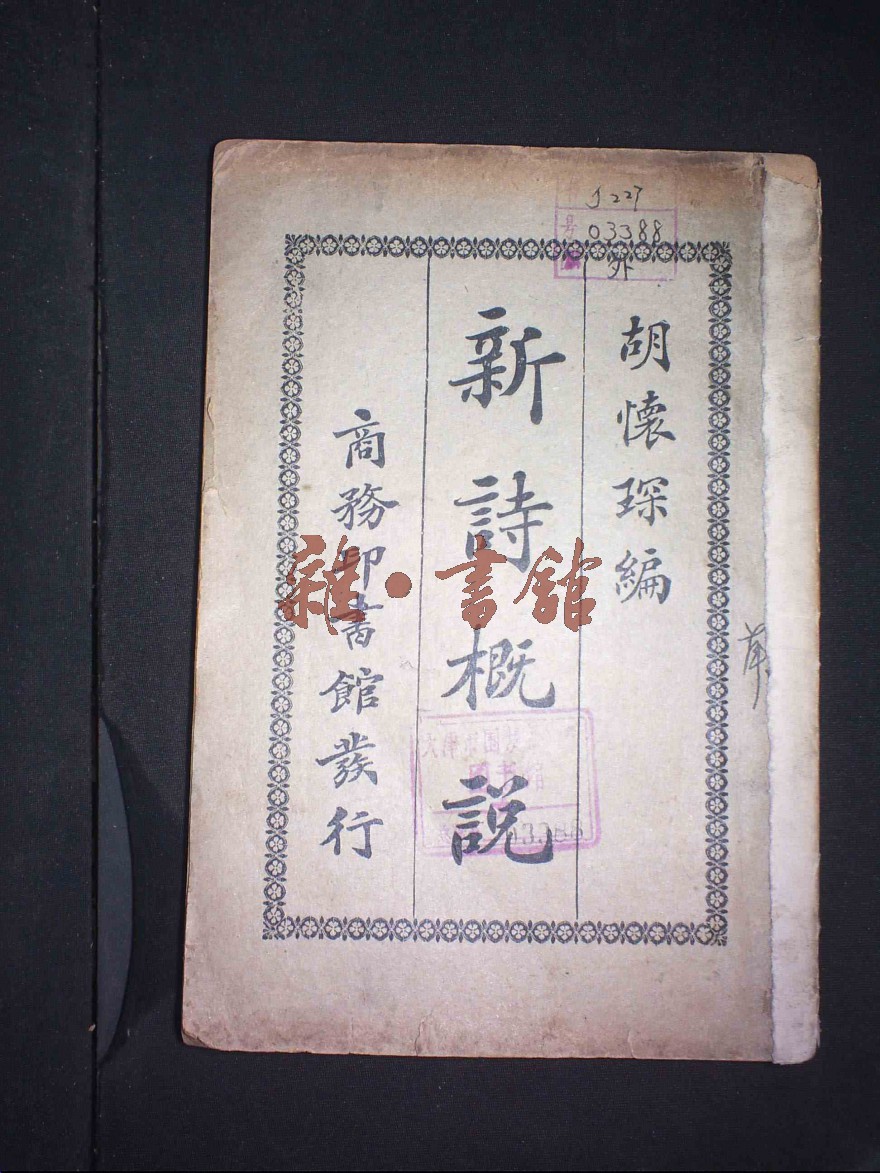 J227
03388
外
胡懷琛編
新詩概說
商務印書館發行
雜·書館
03388